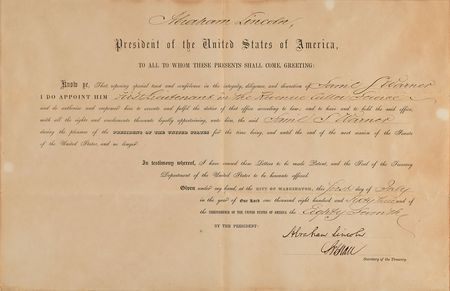 Abraham Lincoln,
President of the United States of America,
TO ALL TO WHOM THESE PRESENTS SHALL COME, GREETING:
Know ye, That, reposing special trust and confidence in the integrity, diligence, and discretion of Saml S Warner
I DO APPOINT HIM First Lieutenant in the Revenue Cutter Service
and do authorize and empower him to execute and fulfil the duties of that office according to law, and to have and to hold the said office,
with all the rights and emoluments thereunto legally appertaining, unto him, the said Saml S Warner
during the pleasure of the PRESIDENT OF THE UNITED STATES for the time being, and until the end of the next session of the Senate
of the United States, and no longer.
In testimony whereof, I have caused these Letters to be made Patent, and the Seal of the Treasury
Department of the United States to be hereunto affixed.
Given under my hand, at the CITY OF WASHINGTON, the day of July
in the year of Our Lord one thousand eight hundred and Sixty and of
the INDEPENDENCE OF THE UNITED STATES OF AMERICA the Eighty
BY THE PRESIDENT:
Abraham Lincoln
Secretary of the Treasury